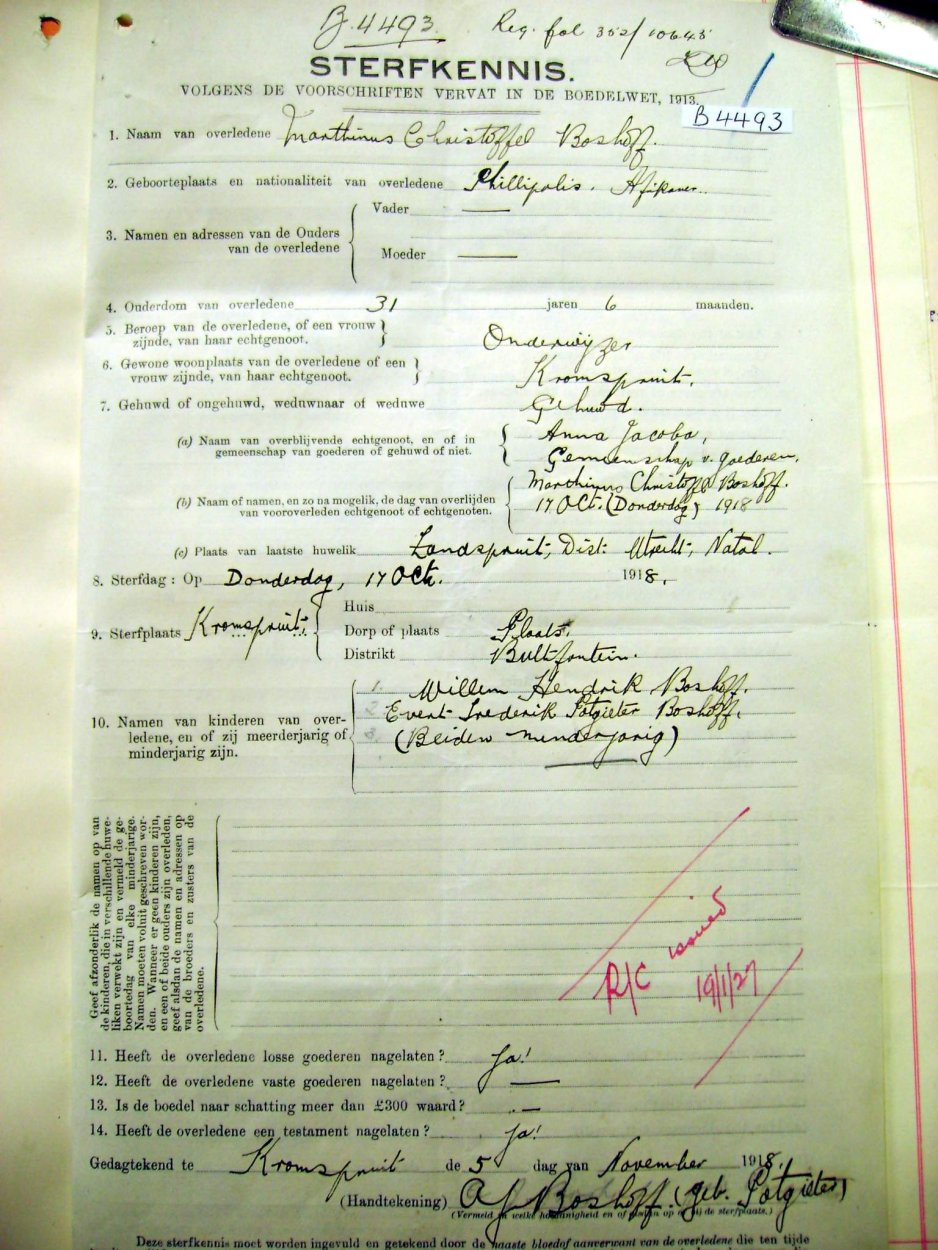 B.4493. Reg. fol 352/10645
STERFKENNIS.
VOLGENS DE VOORSCHRIFTEN VERVAT IN DE BOEDELWET, 1913.
B4493
1. Naam van overledene Marthinus Christoffel Boshoff.
2. Geboorteplaats en nationaliteit van overledene Phillipolis. Afrikaner.
3. Namen en adressen van de Ouders van de overledene
Vader —
Moeder —
4. Onderdom van overledene 31 jaren 6 maanden.
5. Beroep van de overledene, of een vrouw
zijnde, van haar echtgenoot. Onderwijzer
6. Gewone woonplaats van de overledene of een
vrouw zijnde, van haar echtgenoot. Kromspruit.
7. Gehuwd of ongehuwd, weduwnaar of weduwe Gehuwd.
(a) Naam van overblijvende echtgenoot, en of in
gemeenschap van goederen of gehuwd of niet.
Anna Jacoba,
Gemeenschap v. goederen.
(b) Naam of namen, en zo na mogelik, de dag van overlijden
van vooroverleden echtgenoot of echtgenoten.
Marthinus Christoffel Boshoff.
17 Oct. (Donderdag) 1918
(c) Plaats van laatste huwelik Zandspruit, Dist: Utrecht, Natal.
8. Sterfdag: Op Donderdag, 17 Oct. 1918.
9. Sterfplaats Kromspruit
Huis
Dorp of plaats Plaats.
Distrikt Bultfontein.
10. Namen van kinderen van over-
ledene, en of zij meerderjarig of
minderjarig zijn.
1. Willem Hendrik Boshoff.
2. Evert Frederik Potgieter Boshoff.
3. (Beiden minderjarig)
Geef afzonderlik de namen op van
de kinderen, die in verschillende huwe-
liken verwekt zijn en vermeld de ge-
boortedag van elke minderjarige.
Namen moeten voluit geschreven wor-
den. Wanneer er geen kinderen zijn,
en een of beide ouders zijn overleden,
geef alsdan de namen en adressen op
van de broeders en zusters van de
overledene.
R/C issued
19/1/27
11. Heeft de overledene losse goederen nagelaten? Ja!
12. Heeft de overledene vaste goederen nagelaten? —
13. Is de boedel naar schatting meer dan £300 waard? —
14. Heeft de overledene een testament nagelaten? Ja!
Gedagtekend te Kromspruit de 5 dag van November 1918.
(Handtekening) A J Boshoff. (geb. Potgieter)
(Vermeld in welke hoedanigheid en of aanwezig op de sterfplaats.)
Deze sterfkennis moet worden ingevuld en getekend door de naaste bloedof aanverwant van de overledene die ten tijde